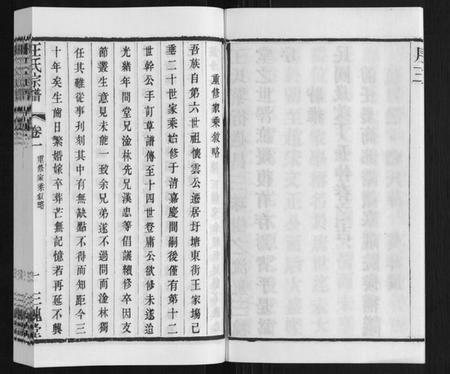 序三
重修家乘敘略
吾族自第六世祖懷雲公遷居圩塘東街王家塲已
垂二十世家乘始修于清嘉慶間嗣後僅有第十二
世幹公手訂草譜傳至十四世登庸公欲修未遂迨
光緒年間堂兄淦林先兄漢忠等倡議續修卒因支
節叢生意見未能一致余兄弟遂不過問而淦林獨
任其難從事刋刻其中有無缺點不得而知距今三
十年矣生齒日繁婚嫁卒葬茫無記憶若再延不襲
汪氏宗譜
卷一
重修家乘敘略
一
三槐堂